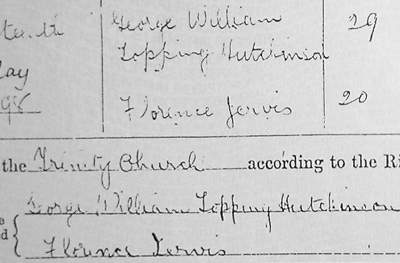 George William 29
Topping Hutchinson
ay
Florence Jervis 20
the Trinity Church according to the Ri
George William Topping Hutchinson
d
Florence Jervis